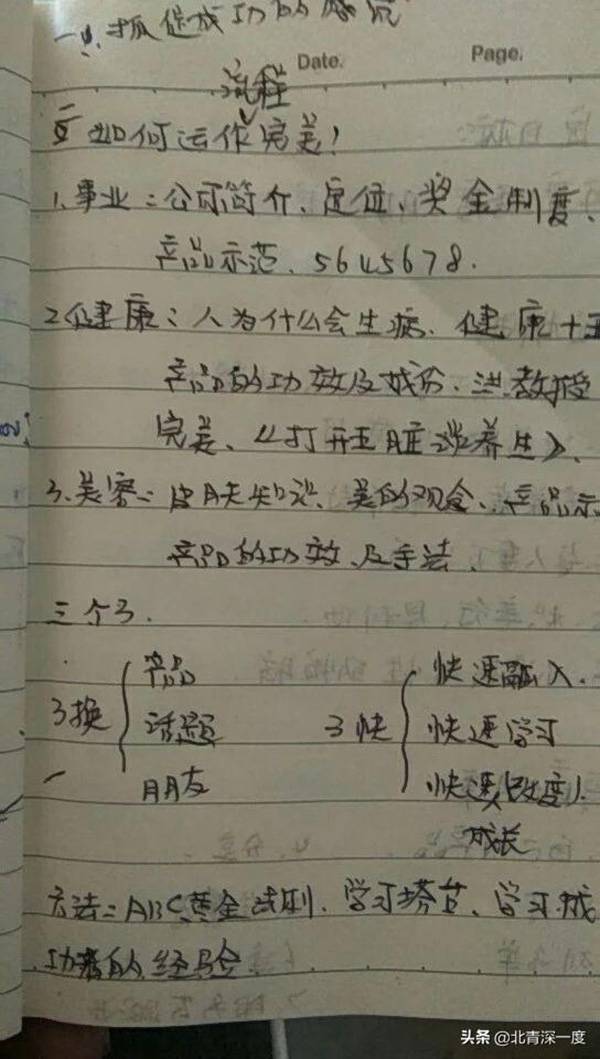 一、抓住成功的感觉
Date.
Page.
流程
如何运作完美！
1、事业：公司简介、定位、奖金制度、
产品示范、5645678.
2健康：人为什么会生病、健康十五
产品的功效及成份、洪教授
完美、《打开五脏谈养生》、
3、美容：皮肤知识、美的观念、产品示
产品的功效、及手法、
三个3.
3换
产品
话题
朋友
3快
快速融入.
快速学习
快速改变).
成长
方法：ABC黄金法则、学习搭台、学习成
功者的经验
头条@北青深一度